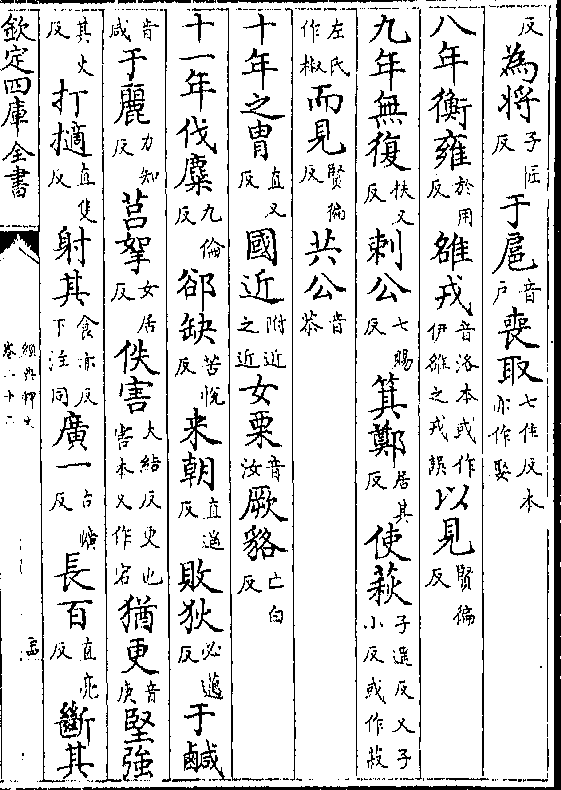 反為将子匠反于扈音户喪取七住反本亦作娶
八年衡雍於用反雒戎音洛本或作伊雒之戎誤以見賢徧反
九年無復扶又反刺公七賜反箕鄭居其反使萩子遥反又子小反或作菽
左氏作椒而見賢徧反共公音恭
十年之胄直又反國近附近之近女栗音汝厥貉亡白反
十一年伐麋九倫反郤缺苦悦反来朝直遥反敗狄必邁反于鹹
音咸于麗力知反莒挐女居反佚害大結反更也害本又作宕猶更音庚堅強
其丈反打擿直隻反射其食亦反下注同廣一古曠反長百直亮反斷其
欽定四庫全書
經典釋文
卷二十二